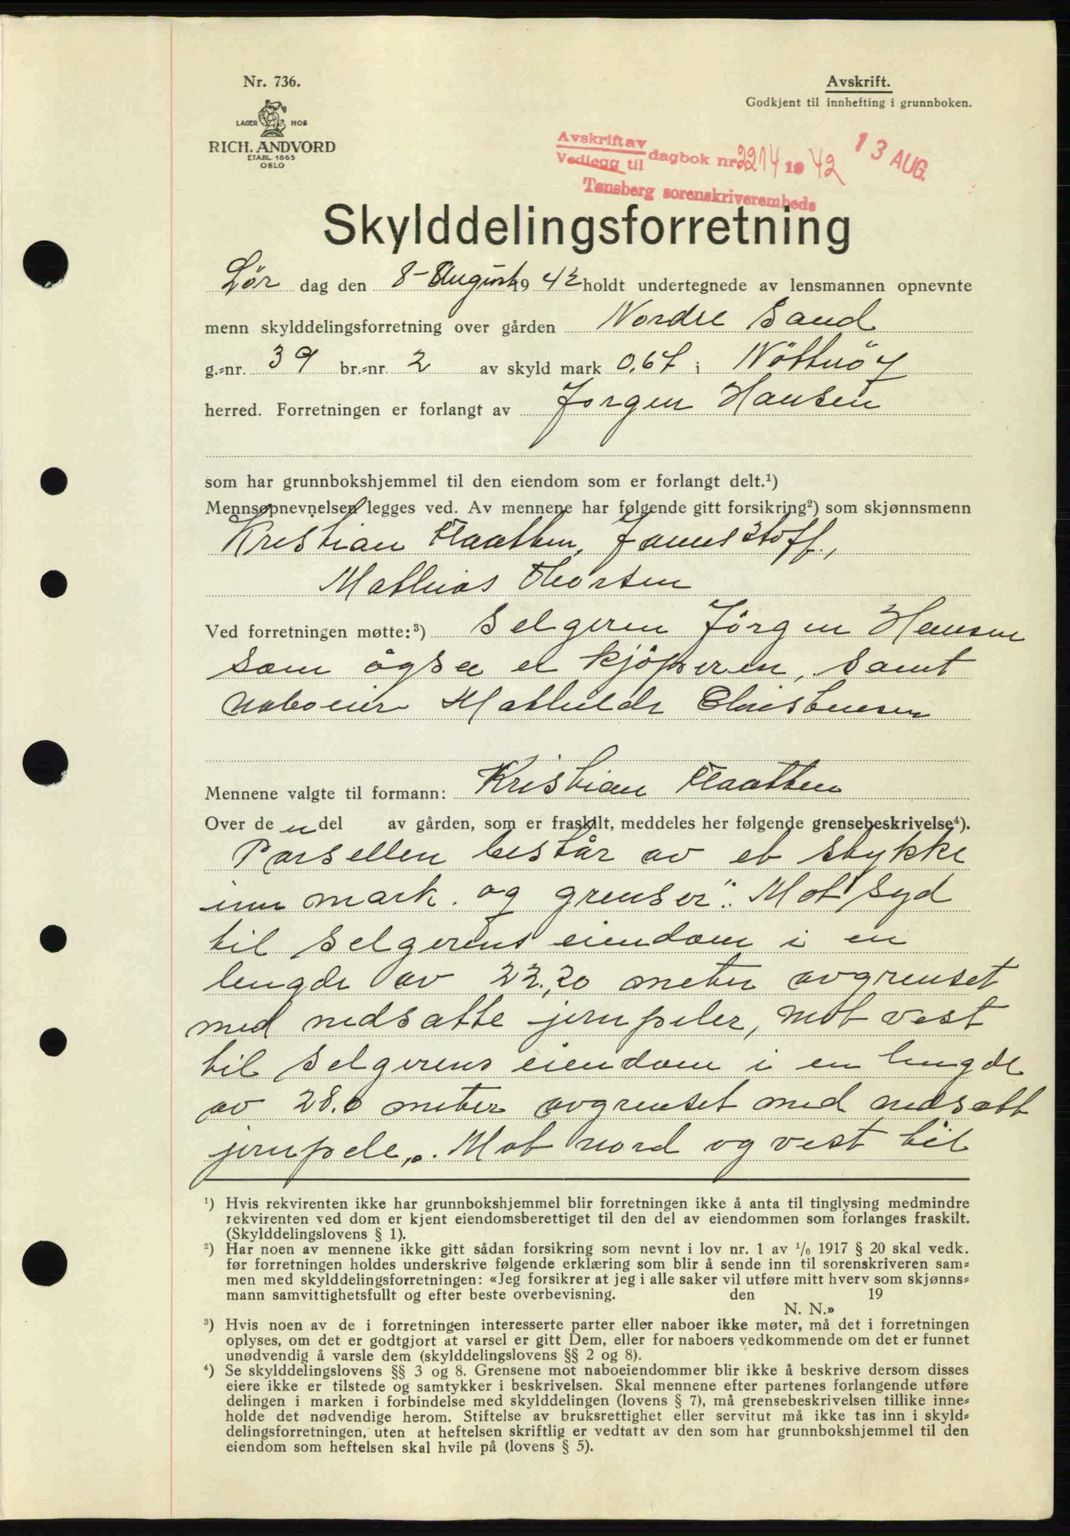 Nr. 736.
LAGER HOS
RICH. ANDVORD
ETABL. 1865
OSLO
Avskrift.
Godkjent til innhefting i grunnboken.
Avskrift av
Vedlegg til dagbok nr 2214 1942 13 AUG.
Tønsberg sorenskriverembede
Skylddelingsforretning
Lør dag den 8 - August 1942 holdt undertegnede av lensmannen opnevnte
menn skylddelingsforretning over gården Nordre Sand
g.-nr. 39 br.-nr. 2 av skyld mark 0,67 i Nötteröy
herred. Forretningen er forlangt av Jørgen Hansen
som har grunnbokshjemmel til den eiendom som er forlangt delt.¹)
Mennsopnevnelsen legges ved. Av mennene har følgende gitt forsikring²) som skjønnsmenn
Kristian Flaatten,
Mathias Thorsen
Ved forretningen møtte:³) Selgeren Jörgen Hansen
som ögsa er kjöperen, samt
naboeier Mathilde Christensen
Mennene valgte til formann: Kristian Flaatten
Over de en del av gården, som er fraskilt, meddeles her følgende grensebeskrivelse⁴).
Parsellen består av et stykke
inn mark. og grenser": Mot syd
til selgerens eiendom i en
lengde av 22,20 meter avgrenset
med nedsatte jernpeler, mot vest
til selgerens eiendom i en lengde
av 28.0 meter avgrenset med nedsatt
jernpele,. Mot nord og vest til
¹) Hvis rekvirenten ikke har grunnbokshjemmel blir forretningen ikke å anta til tinglysing medmindre
rekvirenten ved dom er kjent eiendomsberettiget til den del av eiendommen som forlanges fraskilt.
(Skylddelingslovens § 1).
²) Har noen av mennene ikke gitt sådan forsikring som nevnt i lov nr. 1 av 1/6 1917 § 20 skal vedk.
før forretningen holdes underskrive følgende erklæring som blir å sende inn til sorenskriveren sam-
men med skylddelingsforretningen: «Jeg forsikrer at jeg i alle saker vil utføre mitt hverv som skjønns-
mann samvittighetsfullt og efter beste overbevisning. den 19
N. N.»
³) Hvis noen av de i forretningen interesserte parter eller naboer ikke møter, må det i forretningen
oplyses, om det er godtgjort at varsel er gitt Dem, eller for naboers vedkommende om det er funnet
unødvendig å varsle dem (skylddelingslovens §§ 2 og 8).
⁴) Se skylddelingslovens §§ 3 og 8. Grensene mot naboeiendommer blir ikke å beskrive dersom disses
eiere ikke er tilstede og samtykker i beskrivelsen. Skal mennene efter partenes forlangende utføre
delingen i marken i forbindelse med skylddelingen (lovens § 7), må grensebeskrivelsen tillike inne-
holde det nødvendige herom. Stiftelse av bruksrettighet eller servitut må ikke tas inn i skyld-
delingsforretningen, uten at heftelsen skriftlig er vedtatt av den som har grunnbokshjemmel til den
eiendom som heftelsen skal hvile på (lovens § 5).